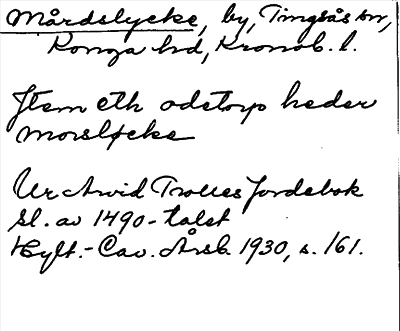 Mårdslycke, by, Tingsås sn,
Konga hd, Kronob. l.
Jtem eth ødetorp heder
morsløcke
Ur Arvid Trolles Jordebok
sl. av 1490-talet
Hylt.-Cav. Årsb. 1930, s. 161.